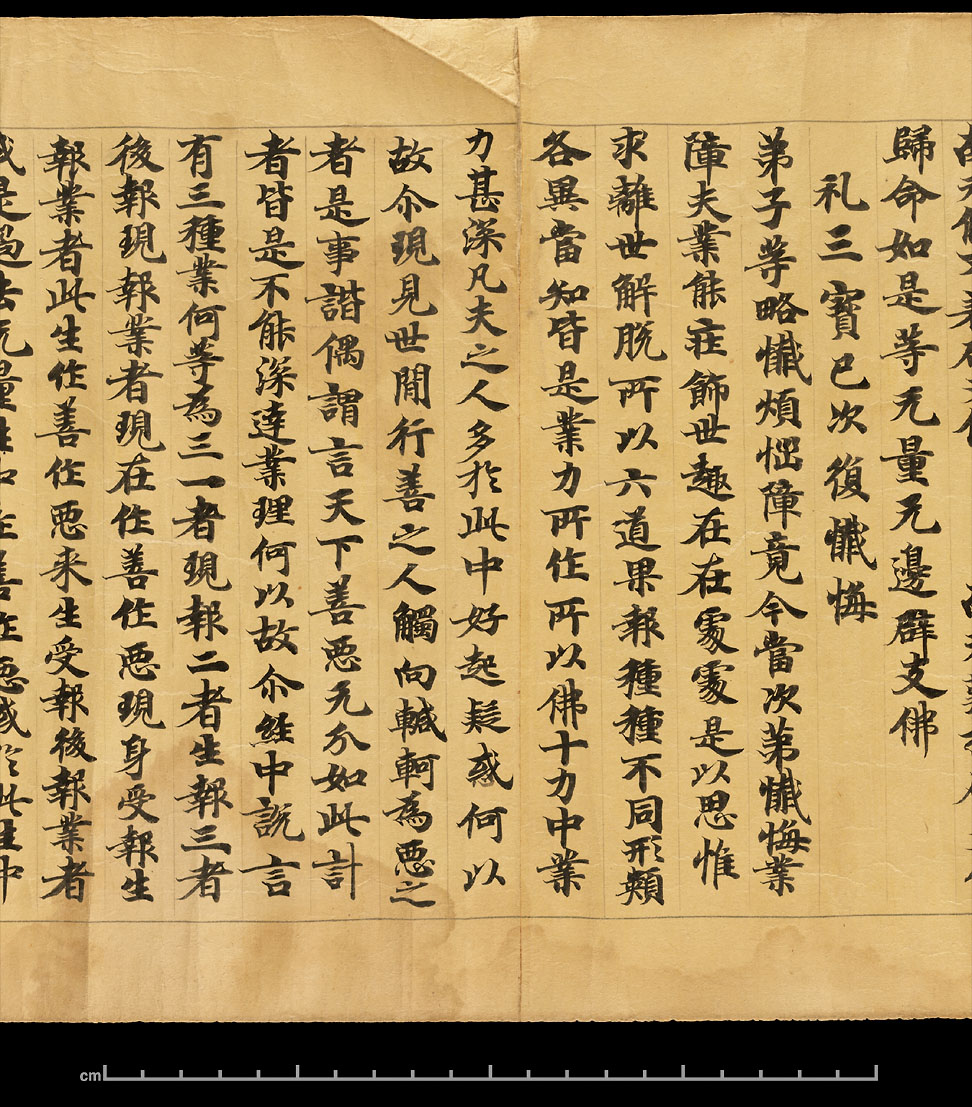 歸命如是等无量无邊辟支佛
礼三寶已次復懺悔
弟子等略懺煩惱障竟今當次第懺悔業
障夫業能莊飾世趣在在處處是以思惟
求離世解脫所以六道果報種種不同形類
各異當知皆是業力所作所以佛十力中業
力甚深凡夫之人多於此中好起疑惑何以
故尒現見世間行善之人觸向轗軻為惡之
者是事諧偶謂言天下善惡无分如此計
者皆是不能深達業理何以故尒經中說言
有三種業何等為三一者現報二者生報三者
後報現報業者現在作善作惡現身受報生
報業者此生作善作惡来生受報後報業者
或是過去无量生中作善作惡或於此生中